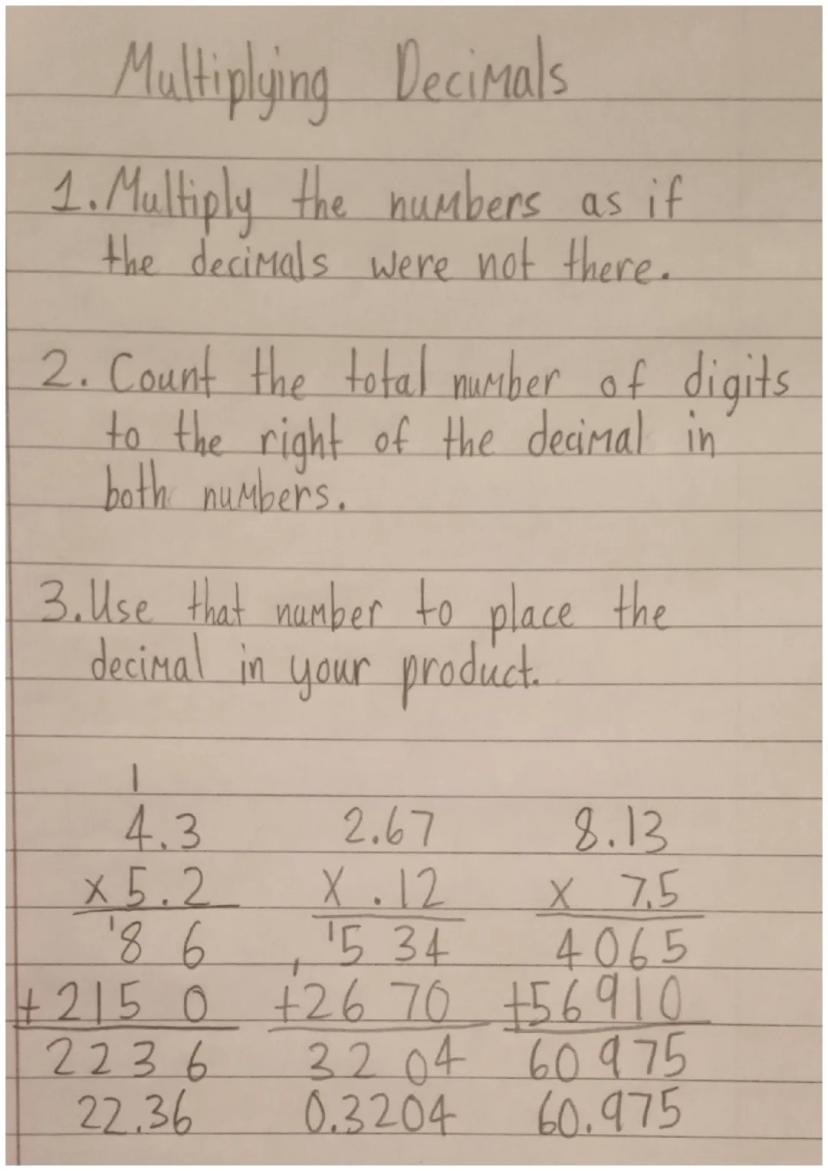 Multiplying Decimals
1. Multiply the numbers as if
the decimals were not there.
2. Count the total number of digits
to the right of the decimal in
both numbers.
3. Use that number to place the
decimal in your product.
1
4.3 2.67 8.13
x 5.2 x .12 x 7.5
1 8 6 1 5 34 4065
+ 215 0 1 +26 70 +56910
223 6 32 04 60975
22.36 0.3204 60.975